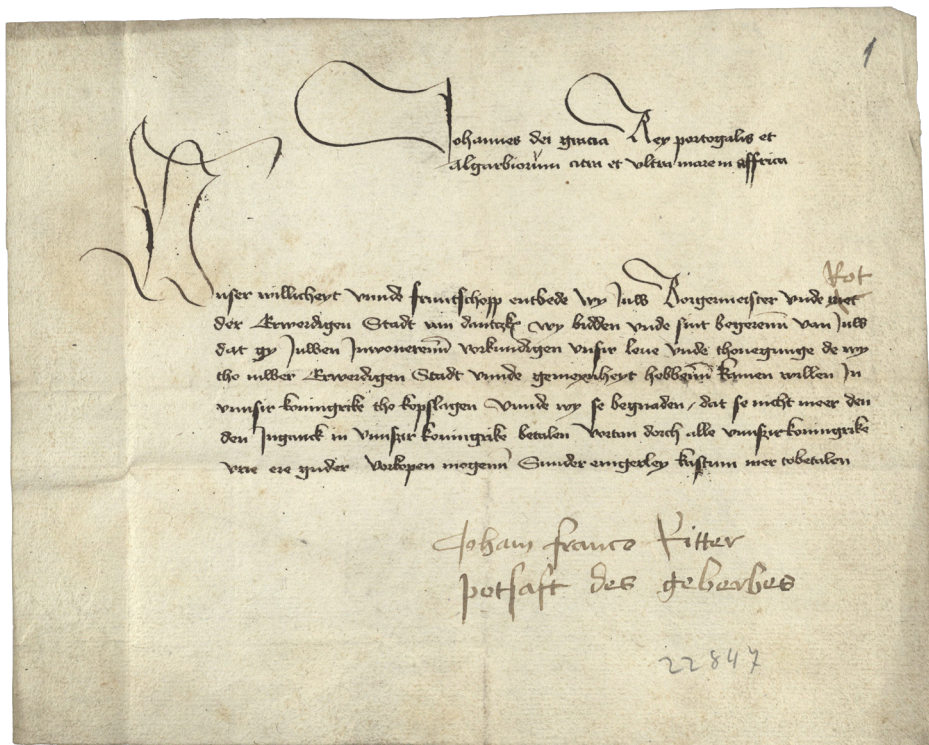 1
Johannes dei gracia Rey portogalis et
algarbiorum citra et ultra marem in affrica
Rot
Unser willicheyt vnnde fruntschopp entbede wy Juw Borgermeister vnde met
der Erwerdigen Stadt van dantzke wy bidden vnde sint begerenn van Juw
dat gy Juwen Inwonerenn vorkundigen vnsir leue vnde thonegunge de wy
tho iuwer Erwerdigen Stadt vnnde gemeynheyt hebbenn kamen willen In
vnnsir koningrike tho kopslagen vnnde wy se begnaden, dat se nicht meer den
den Inganck in vnnszir koningrike betalen vortan dorch alle vnnszir koningrike
vrie ere guder vorkopen mogenn Sunder eingerley kustum mer tobetalen
Joham franco Ritter
potsaft des geberbes
22847